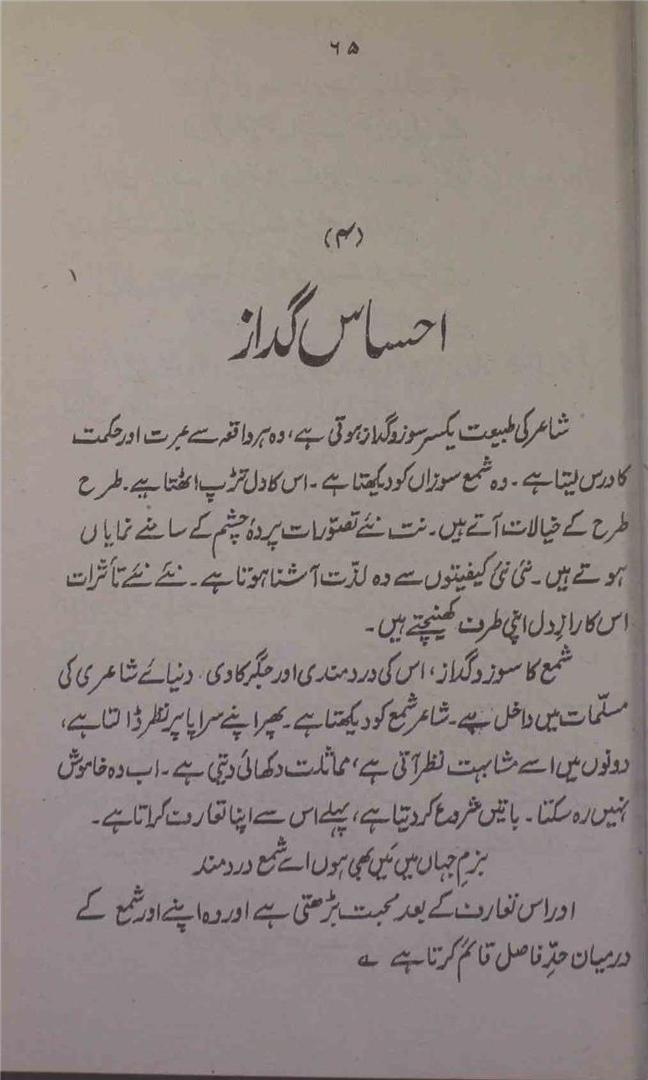 ۶۵
(۴)
احساس گداز
شاعر کی طبیعت یکسر سوز و گداز ہوتی ہے، وہ ہر واقعہ سے عبرت اور حکمت
کا درس لیتا ہے۔ وہ شمع سوزاں کو دیکھتا ہے۔ اس کا دل تڑپ اٹھتا ہے۔ طرح
طرح کے خیالات آتے ہیں۔ نت نئے تصوّرات پردۂ چشم کے سامنے نمایاں
ہوتے ہیں۔ نئی نئی کیفیتوں سے وہ لذّت آشنا ہوتا ہے۔ نئے نئے تأثرات
اس کا رازِ دل اپنی طرف کھینچتے ہیں۔
شمع کا سوز و گداز، اس کی دردمندی اور جگر کاوی۔ دنیائے شاعری کی
مسلّمات میں داخل ہے۔ شاعر شمع کو دیکھتا ہے۔ پھر اپنے سراپا پر نظر ڈالتا ہے،
دونوں میں اسے مشابہت نظر آتی ہے، مماثلت دکھائی دیتی ہے۔ اب وہ خاموش
نہیں رہ سکتا۔ باتیں شروع کر دیتا ہے، پہلے اس سے اپنا تعارف کراتا ہے۔
بزمِ جہاں میں مَیں بھی ہوں اے شمع دردمند
اور اس تعارف کے بعد محبت بڑھتی ہے اور وہ اپنے اور شمع کے
درمیان حدِّ فاصل قائم کرتا ہے ؎